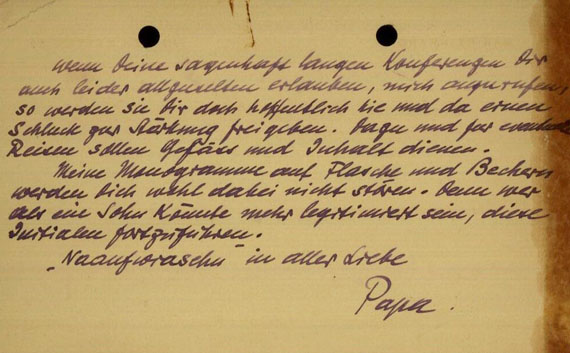 wenn Deine sagenhaft langen Konferenzen Dir
auch leider allzuselten erlauben, mich anzurufen,
so werden sie Dir doch hoffentlich hie und da einen
Schluck zur Stärkung freigeben. Dazu und für
Reisen sollen Gefäss und Inhalt dienen.
Meine Monogramme auf Flasche und Bechern
werden Dich wohl dabei nicht stören. Denn wer
als ein Sohn könnte mehr legitimiert sein, diese
Initialen fortzuführen.
in aller Liebe
Papa.